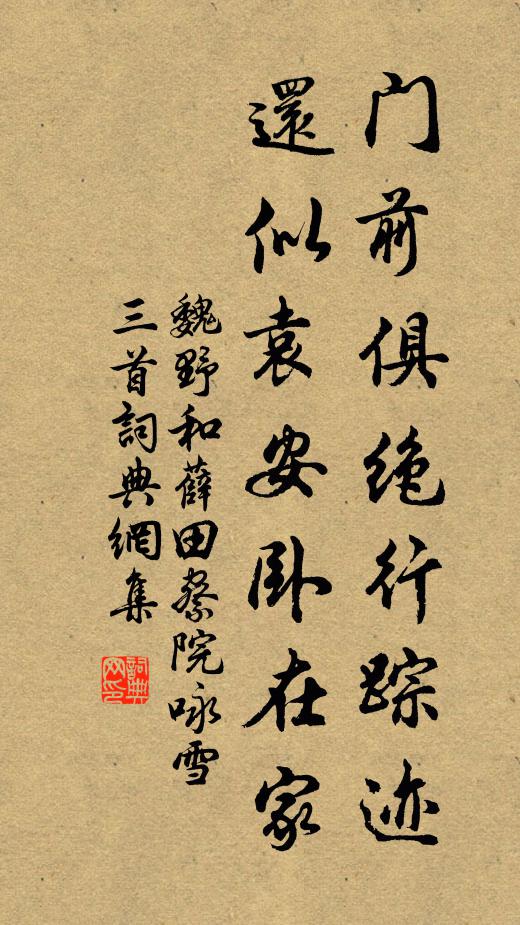 门前俱绝行踪迹
還似袁安卧在家
魏野和薛田察院咏雪
三首詞典網集
詞典网印